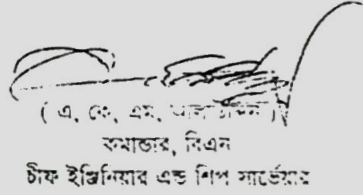 ( এ, কে, এম, আলাউদ্দিন )
কমান্ডার, বিএন
চীফ ইঞ্জিনিয়ার এন্ড শিপ সার্ভেয়ার